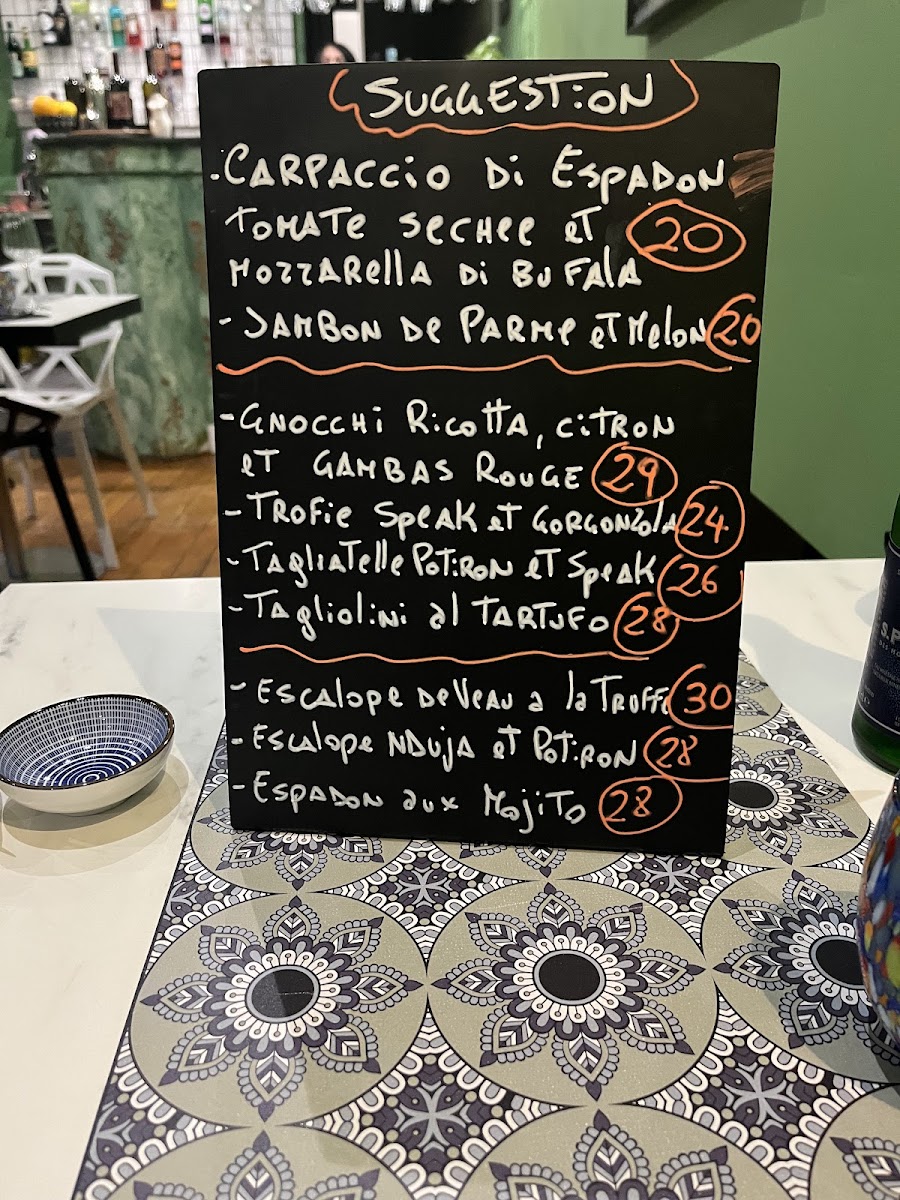 SUGGESTION
. CARPACCIO Di ESPADON
TOMATE SECHEE ET 20
MOZZARELLA Di BUFALA
- JAMBON DE PARME ET MELON 20
- GNOCCHI RicoTTA, ciTRON
ET GAMBAS ROUGE 29
- TROFIE SPEAK ET GORGONZOLA 24
- TAGLIATELLE POTIRON ET SPEAK 26
- TAGLIOLINI al TARTUFO 28
- ESCALOPE DE VEAU a la TRUFFE 30
- ESCALOPE NDUJA ET POTIRON 28
- ESPADON aux MOJITO 28
S.P